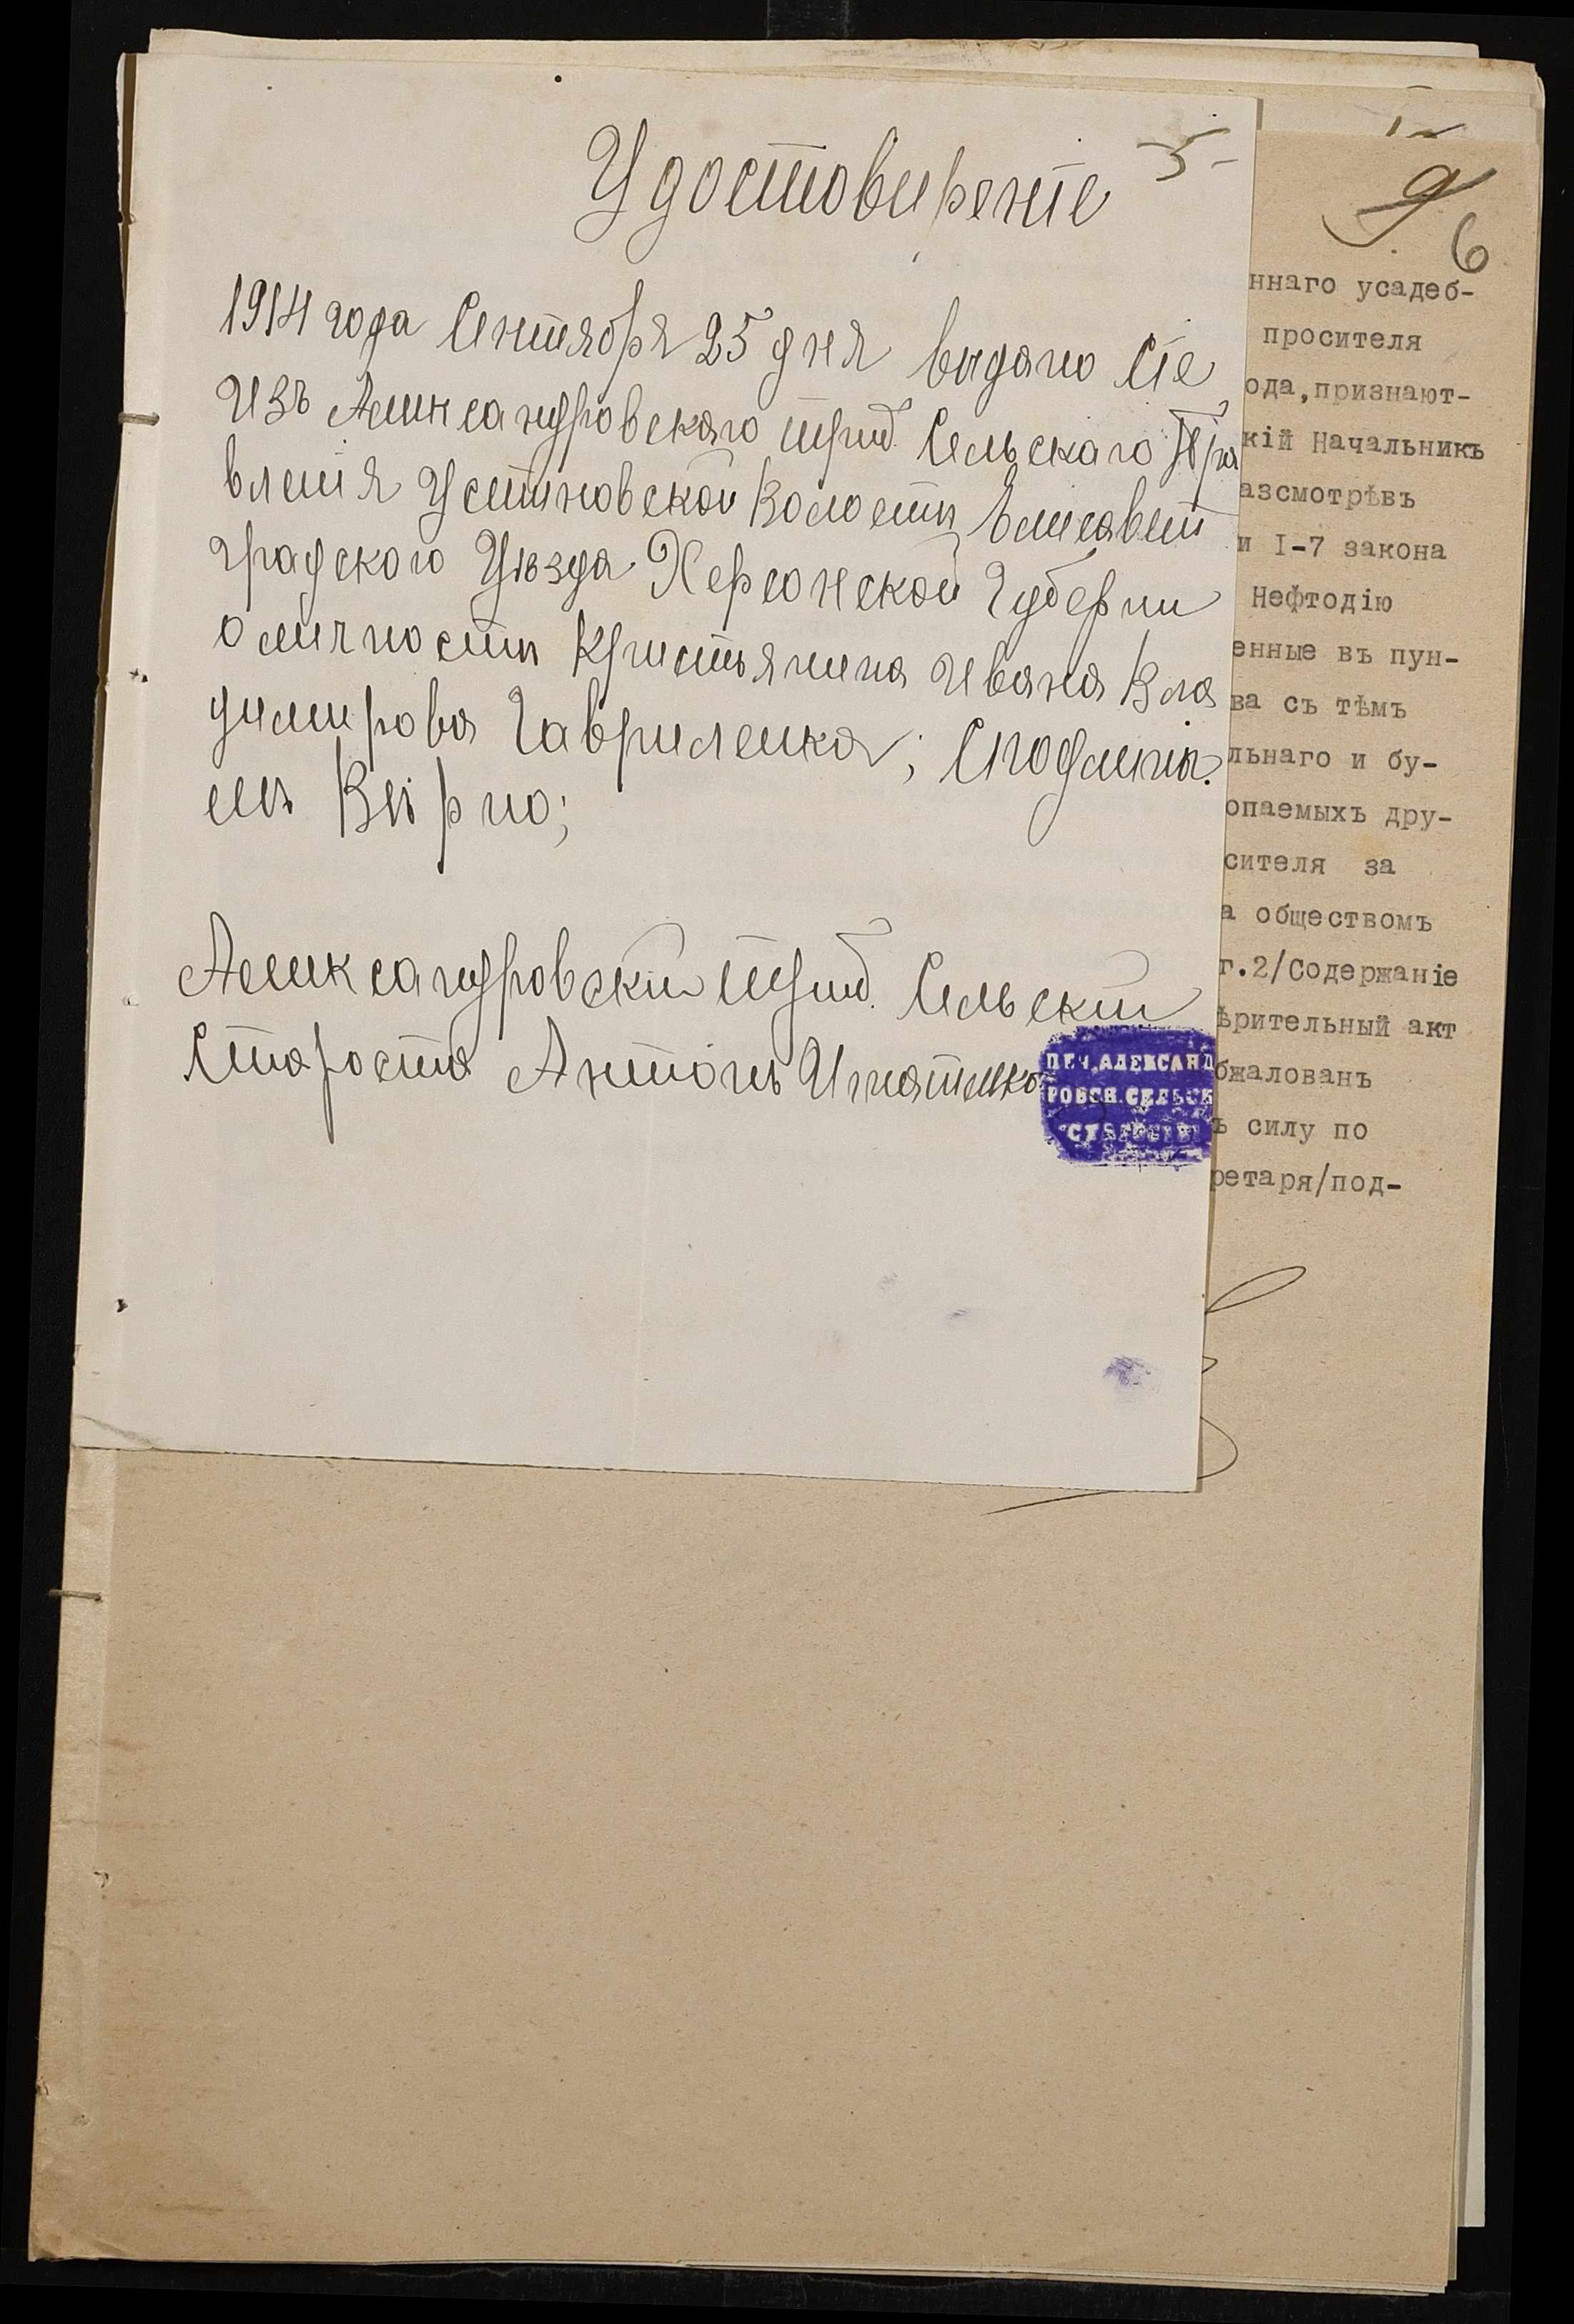 5
Удостовереніе
1914 года Сентября 25 дня выдано Сіе
Изъ Александровского Сельскаго Пра
вленія Устиновской Волости Елисавет
градского Уѣзда Херсонской Губерни
о личности Кристьянина Ивана Вла
димирова Гавриленка; Сподлины.
мъ Вѣрно;
Александровски Сельски
Староста Антонъ Игнатенко
ПЕЧ. АЛЕКСАНД
РОВСК. СЕЛЬСК
СТАРОСТЫ
9
6
ннаго усадеб-
просителя
ода,признают-
кій Начальникъ
азсмотрѣвъ
и I-7 закона
Нефтодію
енные въ пун-
ва съ тѣмъ
льнаго и бу-
опаемыхъ дру-
сителя за
а обществомъ
г.2/Содержаніе
ѣрительный акт
бжалованъ
ъ силу по
ретаря/под-